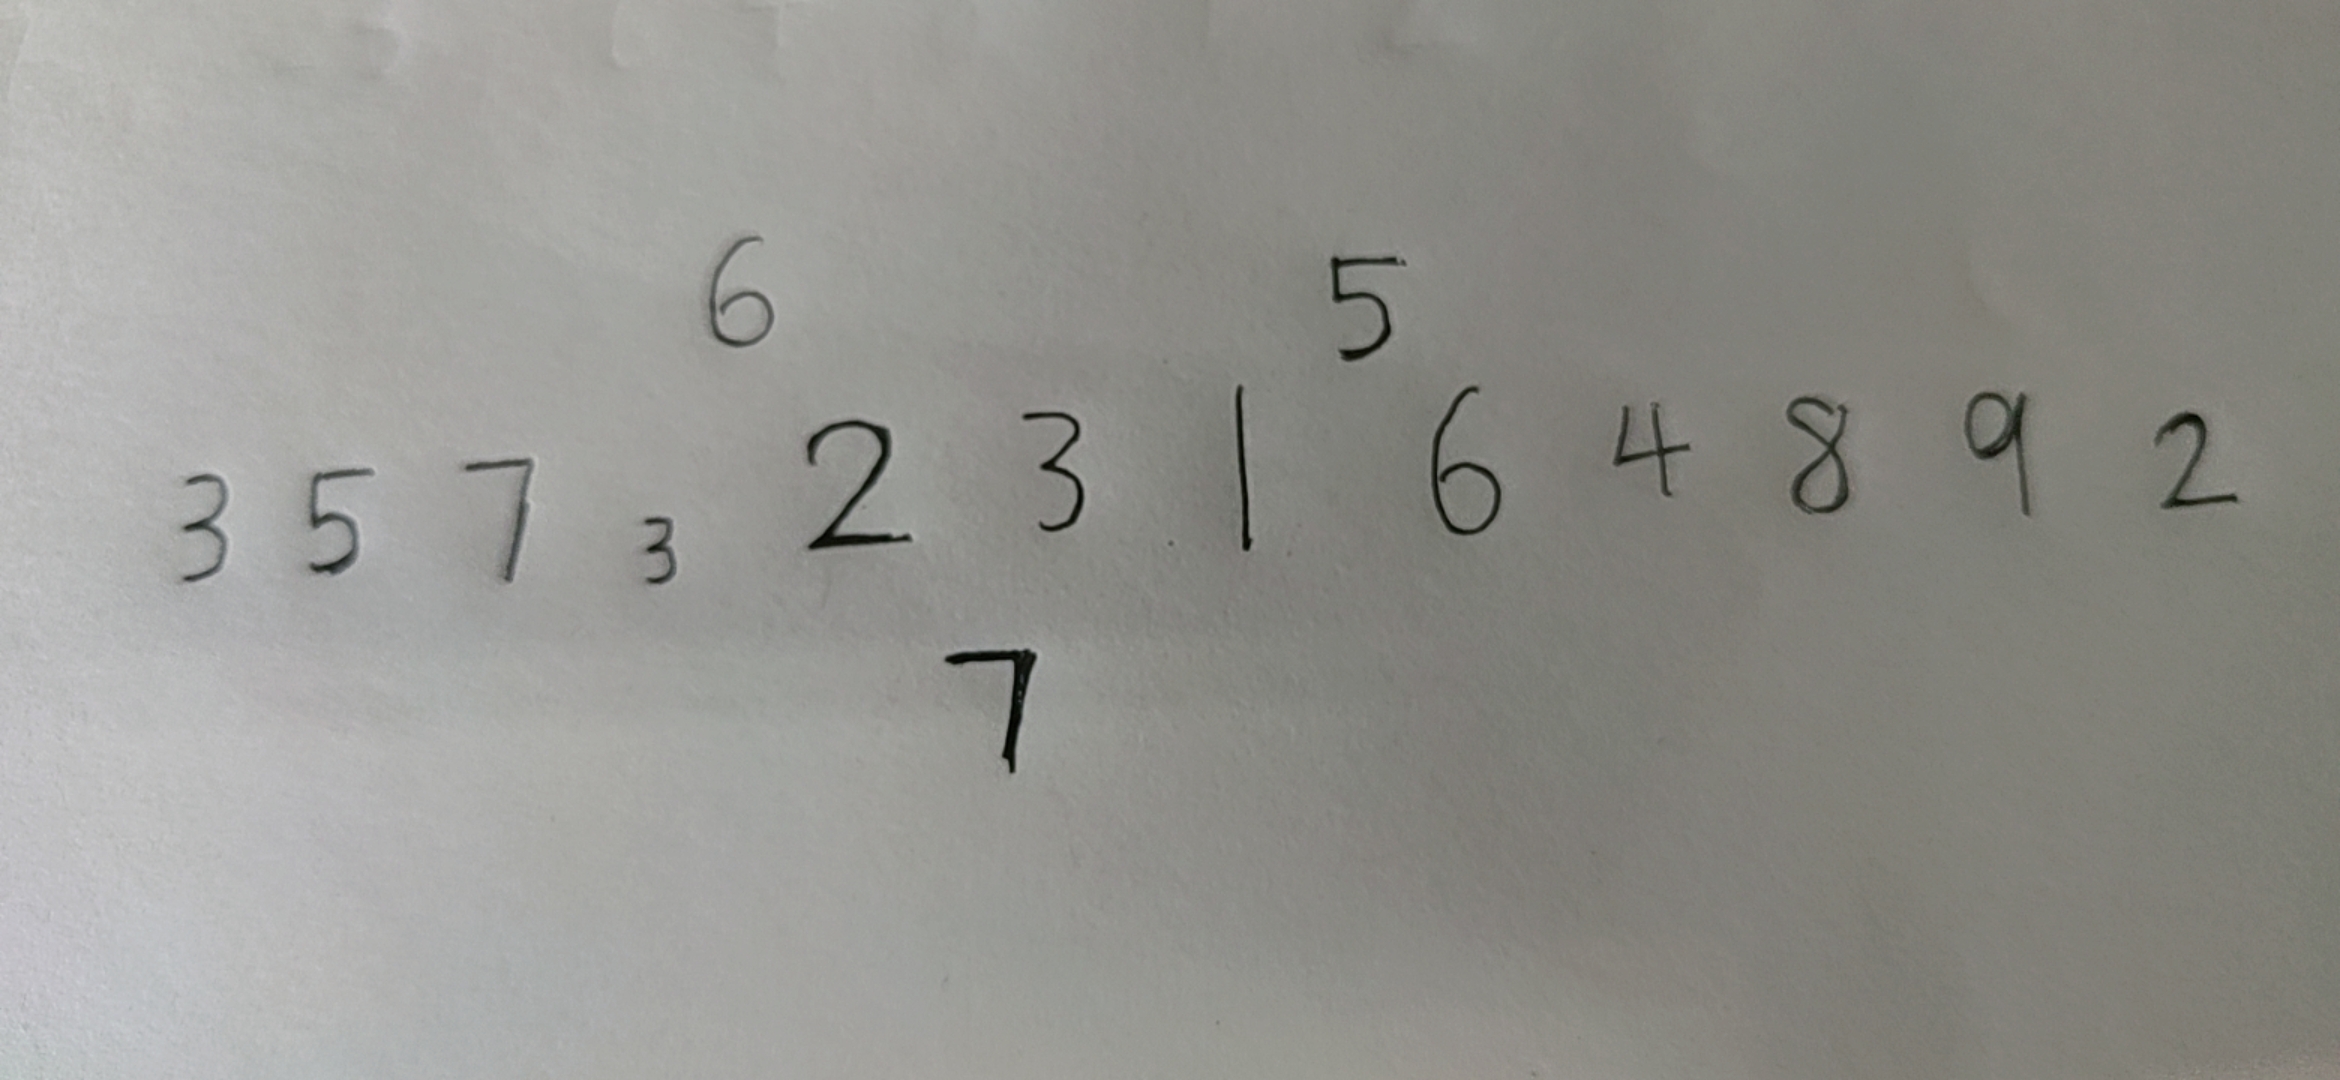 6 5
3 5 7 3 2 3 1 6 4 8 9 2
7